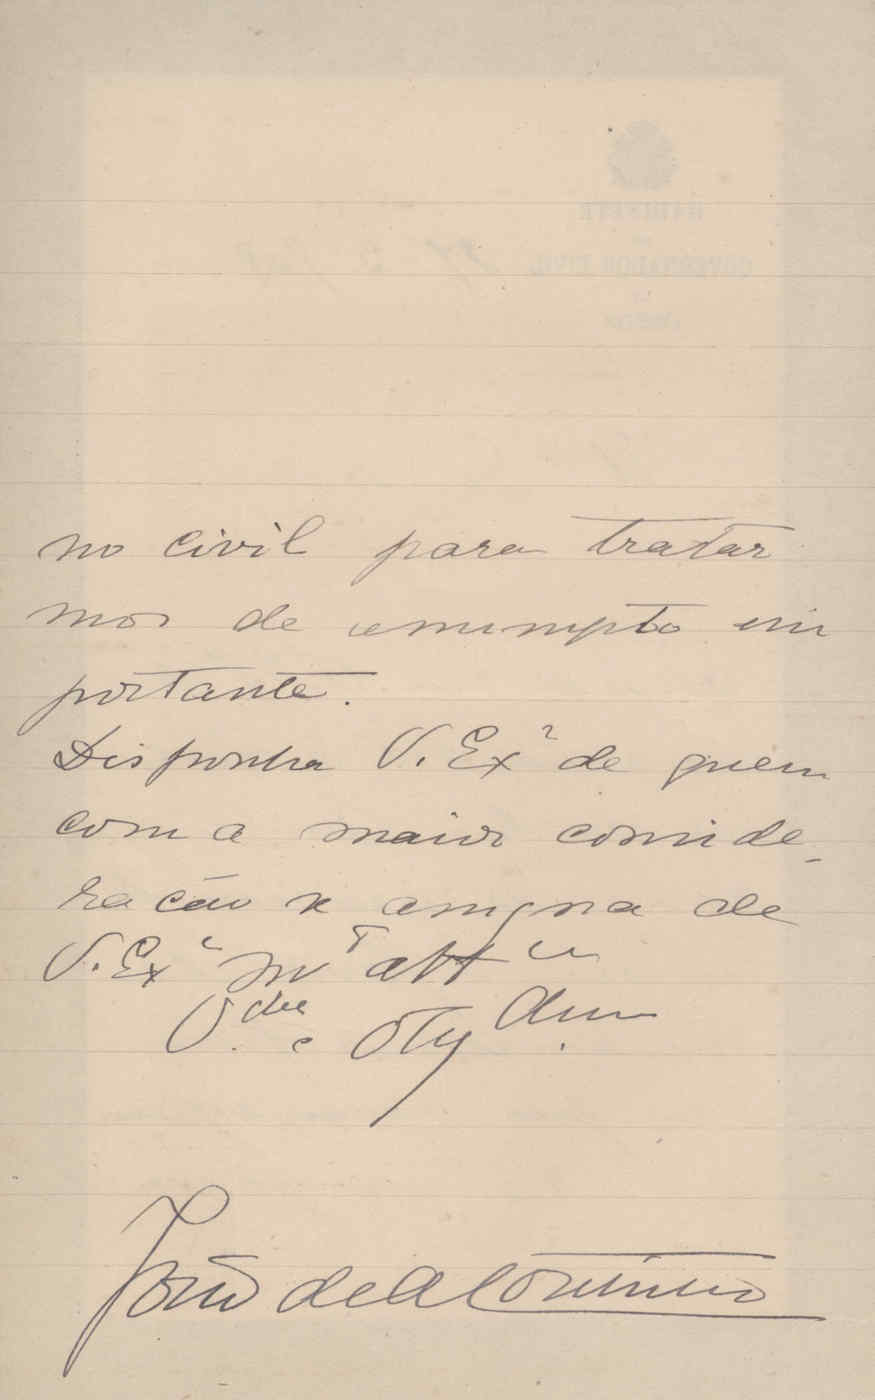 no civil para tratar
mos de assumpto im
portante.
Disponha V. Exª de quem
com a maior conside-
ração se assigna de
V. Exª mᵗᵒ attᵒ
Vᵈᵒʳ e Obgᵈᵒ
João de